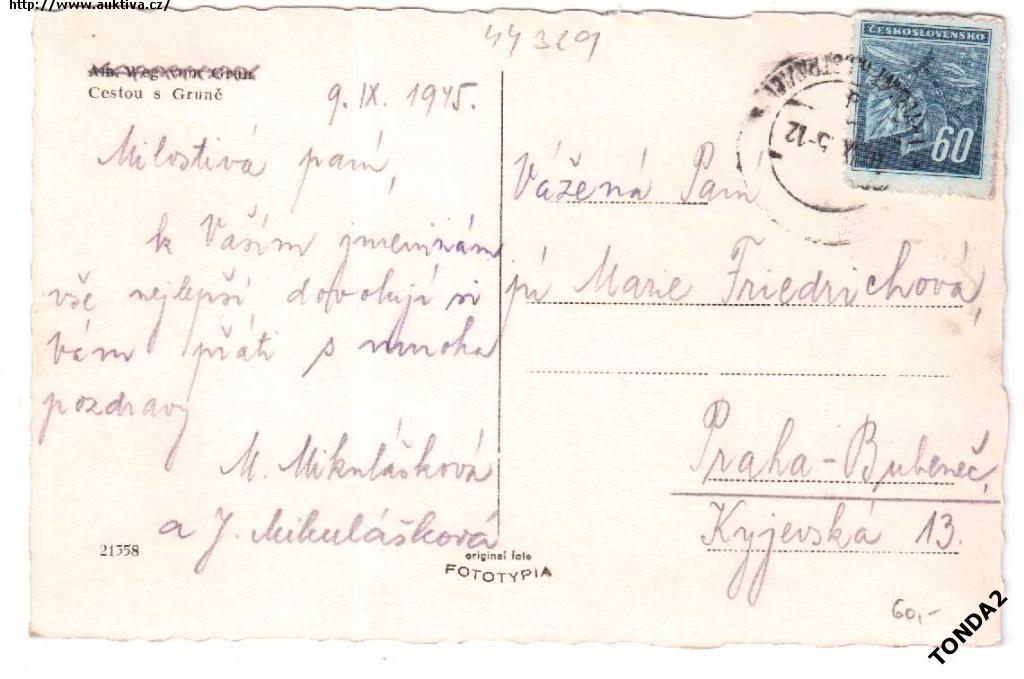 http://www.auktiva.cz/
44329
Cestou s Gruně
9. IX. 1945.
Milostivá paní,
k Vašim jmeninám
vše nejlepší dovolují si
Vám přáti s mnoha
pozdravy
M. Mikulášková
a J. Mikulášková
21558
original foto
FOTOTYPIA
ČESKOSLOVENSKO
60
Vážená Paní
pí Marie Friedrichová,
Praha-Bubeneč,
Kyjevská 13.
60,-
TONDA2